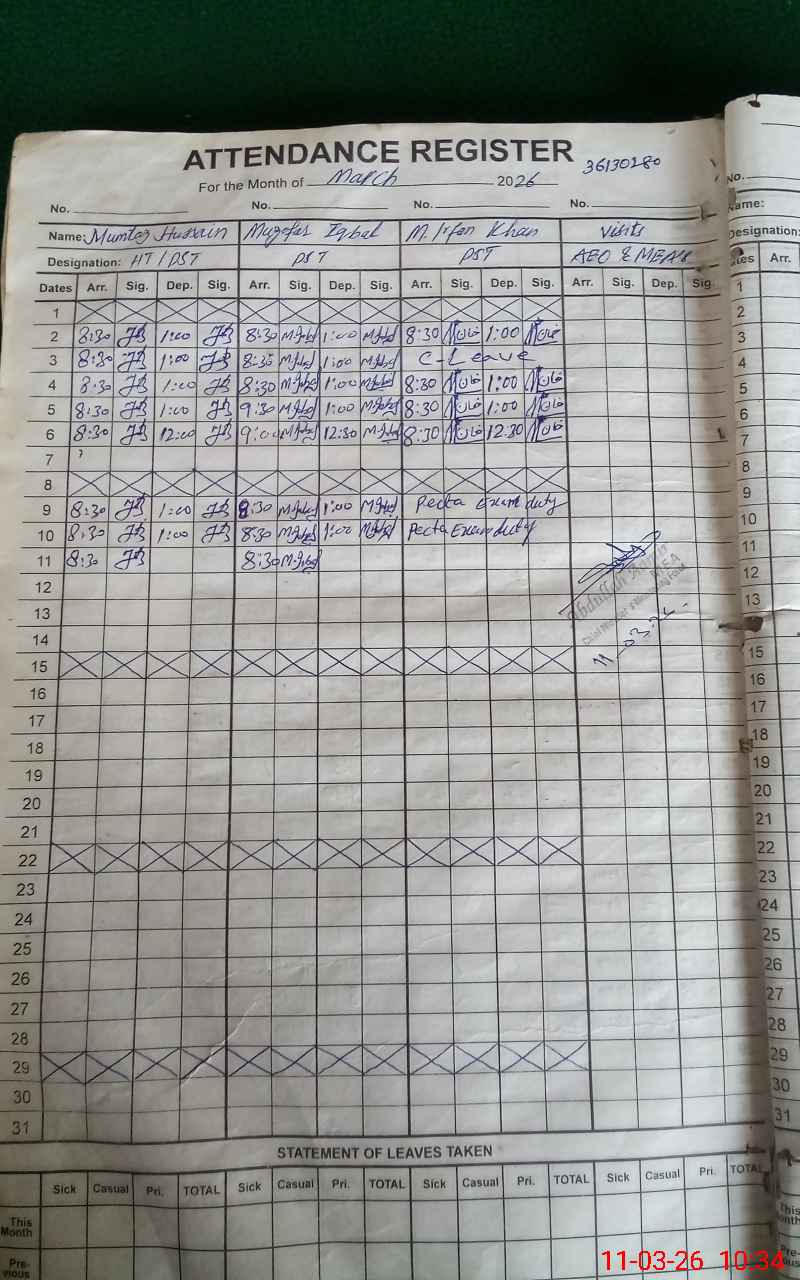 ATTENDANCE REGISTER
36130280
For the Month of March 2026
No. No. No. No.
Name: Mumtaz Hussain Muzafar Iqbal M. Irfan Khan Visits
Designation: HT / PST PST PST AEO & MEA's
Dates Arr. Sig. Dep. Sig. Arr. Sig. Dep. Sig. Arr. Sig. Dep. Sig. Arr. Sig. Dep. Sig.
1
2 8:30 1:00 8:30 M.Iqbal 1:00 M.Iqbal 8:30 1:00
3 8:30 1:00 8:30 M.Iqbal 1:00 M.Iqbal C-Leave
4 8:30 1:00 8:30 M.Iqbal 1:00 M.Iqbal 8:30 1:00
5 8:30 1:00 9:30 M.Iqbal 1:00 M.Iqbal 8:30 1:00
6 8:30 12:00 9:00 M.Iqbal 12:30 M.Iqbal 8:30 12:30
7
8
9 8:30 1:00 8:30 M.Iqbal 1:00 M.Iqbal Pecta Exam duty
10 8:30 1:00 8:30 M.Iqbal 1:00 M.Iqbal Pecta Exam duty
11 8:30 8:30 M.Iqbal
12
13
Abdullah
MEA
11-03-26
14
15
16
17
18
19
20
21
22
23
24
25
26
27
28
29
30
31
STATEMENT OF LEAVES TAKEN
Sick Casual Pri. TOTAL Sick Casual Pri. TOTAL Sick Casual Pri. TOTAL Sick Casual Pri. TOTAL
This Month
Pre-vious
No.
Name:
Designation:
Dates Arr.
1
2
3
4
5
6
7
8
9
10
11
12
13
15
16
17
18
19
20
21
22
23
24
25
26
27
28
29
30
31
This
11-03-26 10:34